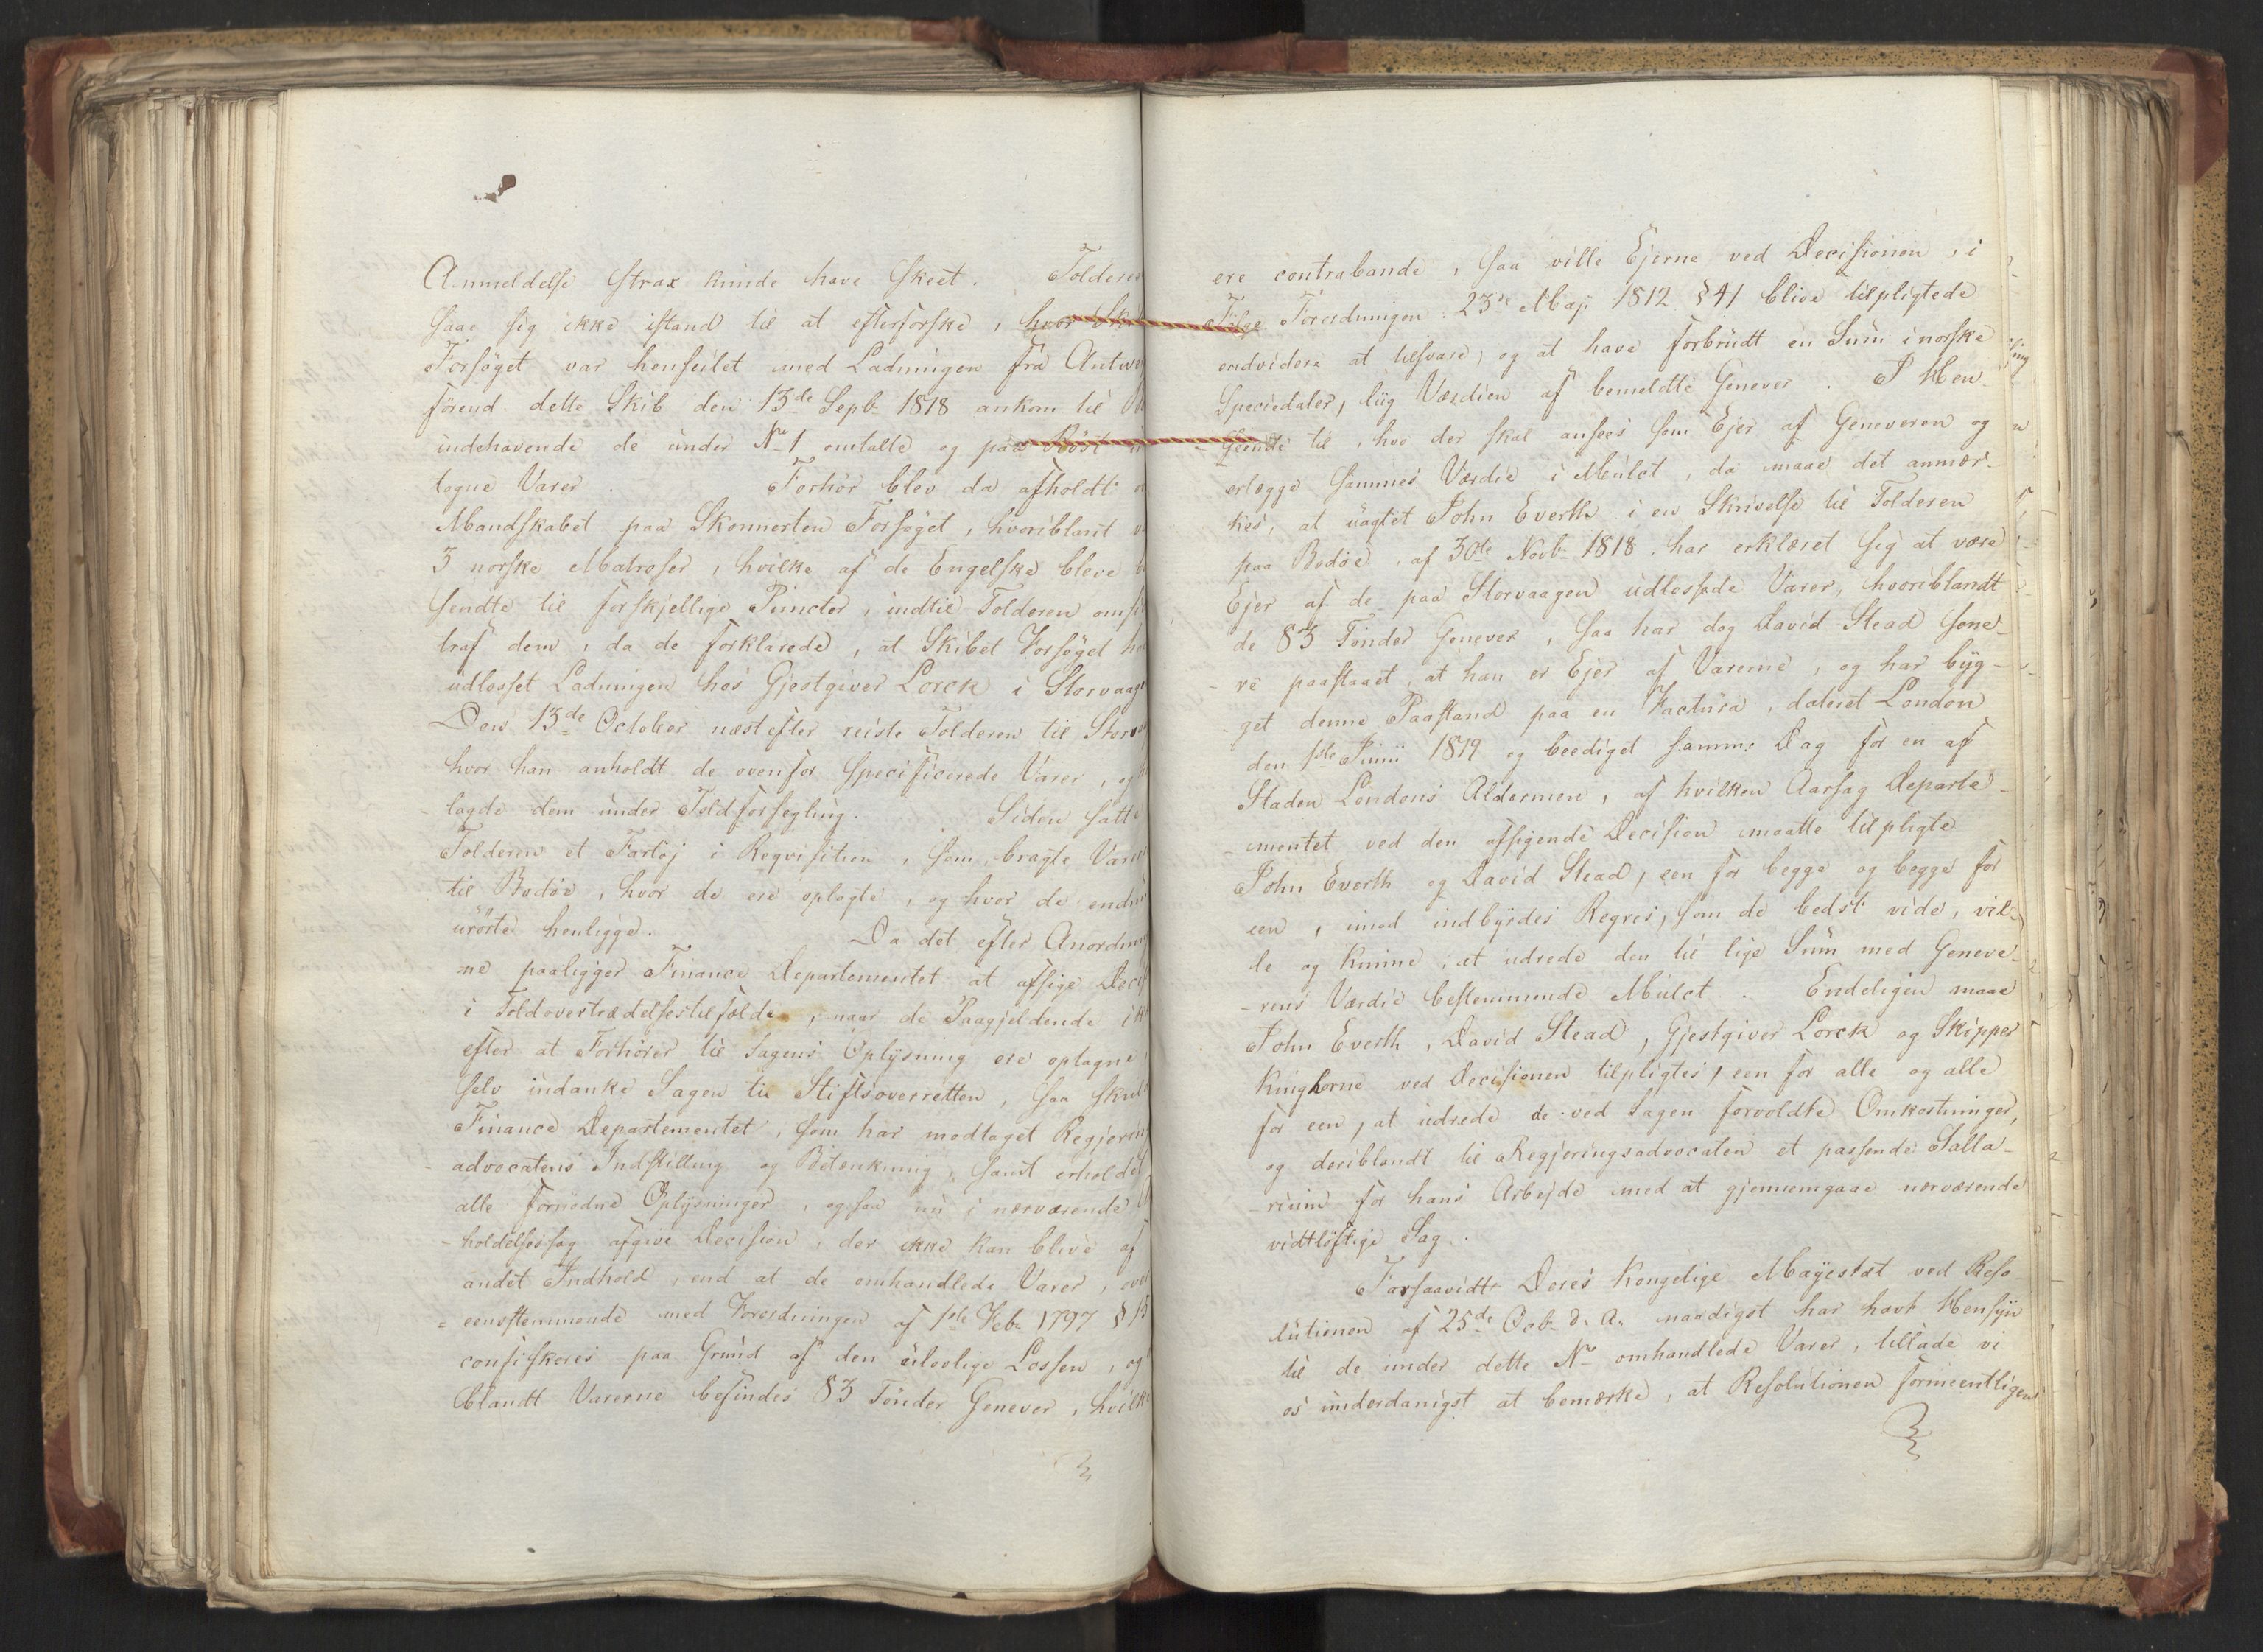 Anmeldelse strax kunde have skeet. Tolderen
saae sig ikke istand til at efterforske, hvor
Forsöget var henseilet med Ladningen fra Antwe
förend dette Skib den 13de Septb 1818 ankom til
indehavende de under No 1 omtalte og paa Röst
tagne Varer. Forhör blev da afholdt
Mandskabet paa Skonnerten Forsöget, hvoriblant
3 norske Matroser, hvilke af de Engelske bleve
sendte til forskjellige Puncter, indtil Tolderen omsi
traf dem, da de forklarede, at Skibet Forsöget
udlosset Ladningen hos Gjestgiver Lorck i Storvaag
Den 13de October næstefter reiste Tolderen til Storv
hvor han anholdt de ovenfor specificerede Varer, og
lagde dem under Toldforsegling. Siden satte
Tolderen et Fartöj i Reqvisition, som bragte Vare
til Bodöe, hvor de ere oplagte, og hvor de endnu
urörte henligge. Da det efter Anordning
ne paaligger Finance Departementet at afsige Decis
i Toldovertrædelsestilfælde, naar de Paagjeldende ik
efter at Forhörer til Sagens Oplysning ere optagne,
selv indanke Sagen til Stiftsoverretten, saa skul
Finance Departementet, som har modtaget Regjerin
advocatens Indstilling og Betænkning, samt erholdet
alle fornödne Oplysninger, ogsaa nu i nærværende
holdelsessag afgive Decision, der ikke kan blive af
andet Indhold, end at de omhandlede Varer, ove
= eensstemmende med Forordningen af 1ste Feb. 1797 § 15
confiskeres paa Grund af den ulovlige Lossen, og
blandt Varerne befindes 83 Tönder Genever, hvilke
ere contrabande, saa ville Ejerne ved Decisionen, i
Fölge Forordningen 23de Maji 1812 § 41 blive tilpligtede
endvidere at tilsvare, og at have forbrudt en Sum i norske
Speciedaler, liig Værdien af bemeldte Genever. I Hen-
- seende til, hvo der skal ansees som Ejer af Geneveren og
erlægge sammes Værdie i Mulct, da maae det anmær-
kes, at uagtet John Everth i en Skrivelse til Tolderen
paa Bodöe, af 30te Novb. 1818 har erklæret sig at være
Ejer af de paa Storvaagen udlossede Varer, hvoriblandt
de 83 Tönder Genever, saa har dog David Stead sene-
- re paastaaet, at han er Ejer af Varerne, og har byg-
- get denne Paastand paa en Factura, dateret London
den 1ste Junii 1819 og beediget samme Dag for en af
Staden Londons Aldermen, af hvilken Aarsag Departe-
- mentet ved den afsigende Decision maatte tilpligte
John Everth og David Stead, een for begge og begge for
een, imod indbyrdes Regres, som de bedst vide, vil-
le og kunne, at udrede den til lige Sum med Geneve-
- rens Værdie bestemmende Mulct. Endeligen maae
John Everth, David Stead, Gjestgiver Lorck og Skipper
Kinghorne ved Decisionen tilpligtes, een for alle og alle
for een, at udrede de ved Sagen forvoldte Omkostninger,
og deriblandt til Regjeringsadvocaten et passende Salla-
- rium for hans Arbejde med at gjennemgaae nærværende
vidtlöftige Sag.
Forsaavidt Deres Kongelige Mayestæt ved Reso-
lutionen af 25de Octb. d. A. naadigst har havt Hensyn
til de under dette No omhandlede Varer, tillade vi
os underdanigst at bemærke, at Resolutionen formeentligen